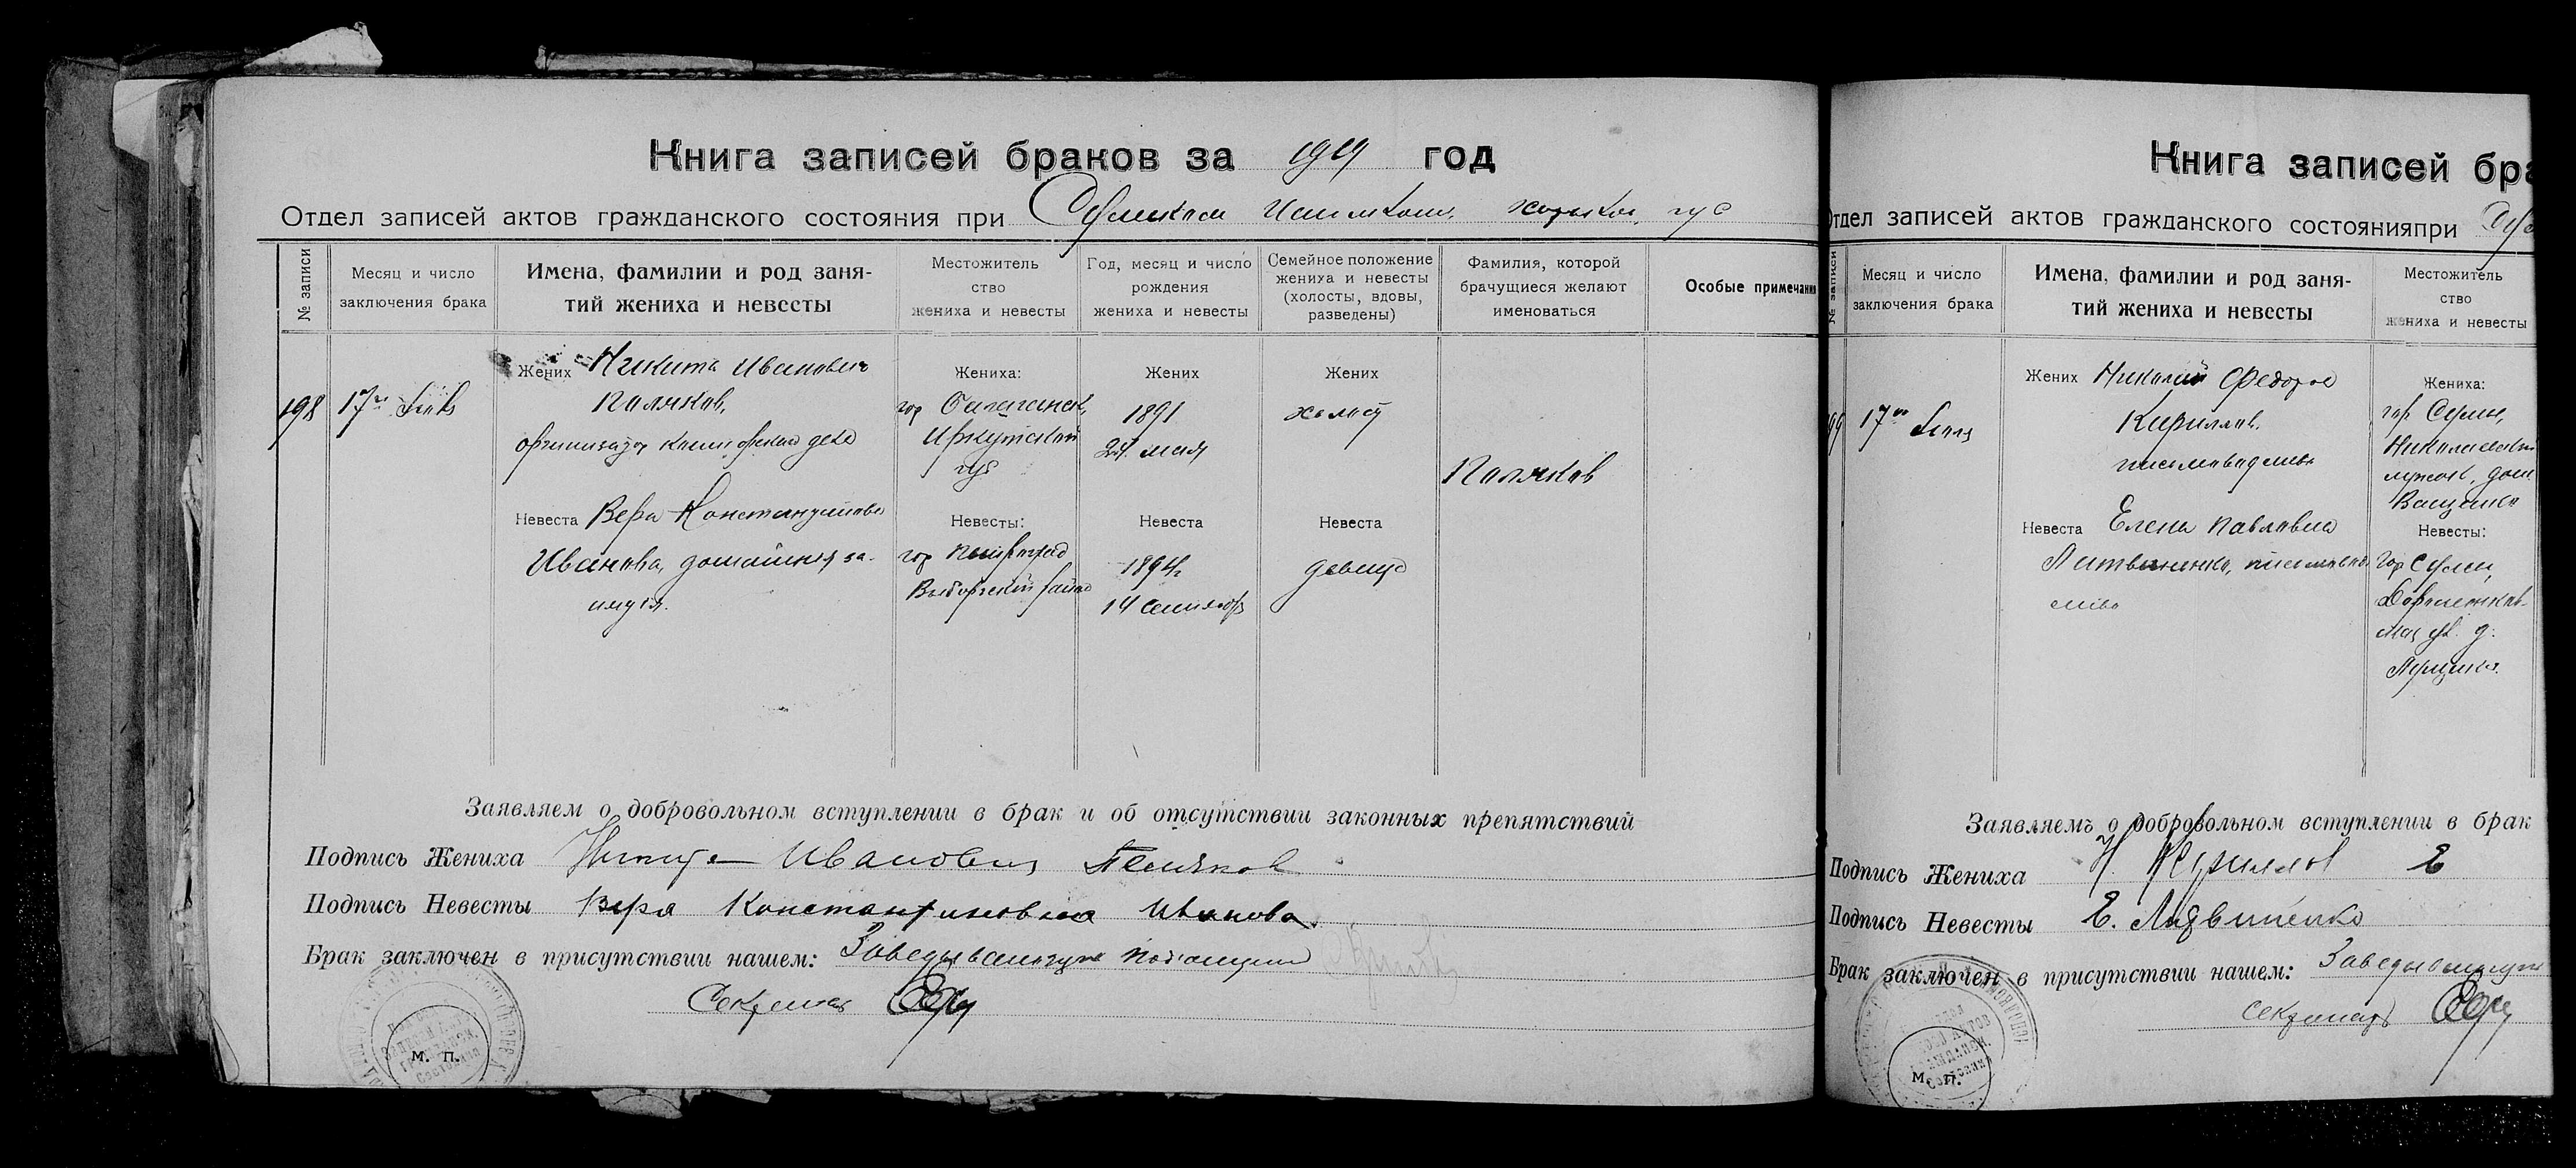 Книга записей браков за 1919 год
Отдел записей актов гражданского состояния при Сумском Исполком. харьков. губ
№ записи
Месяц и число
заключения брака
Имена, фамилии и род заня-
тий жениха и невесты
Местожитель
ство
жениха и невесты
Год, месяц и число
рождения
жениха и невесты
Семейное положение
жениха и невесты
(холосты, вдовы,
разведены)
Фамилия, которой
брачущиеся желают
именоваться
Особые примечани
198
17го
Жених Никита Иванович
Поляков,
организатор
Жениха:
гор Балаганск,
Иркутской
губ
Жених
1891
24 мая
Жених
холост
Поляков
Невеста Вера Константинова
Иванова, домашния за-
нятия.
Невесты:
гор Петроград
Выборгский район
Невеста
1894
14 сентября
Невеста
девица
Заявляем о добровольном вступлении в брак и об отсутствии законных препятствий
Подпись Жениха Никита Иванович Поляков
Подпись Невесты Вера Константиновна Иванова
Брак заключен в присутствии нашем: Заведывающий
Секретарь
М. П.
Книга записей бра
Отдел записей актов гражданского состоянияпри Сум
№ записи
Месяц и число
заключения брака
Имена, фамилии и род заня-
тий жениха и невесты
Местожитель
ство
жениха и невесты
99
17го
Жених Николай Федоров
Кириллов.
письмоводитель
Жениха:
гор Сумы,
Николаевский
дом
Ващенко
Невеста Елена Павловна
Литвиненко, письмовод
Невесты:
гор Сумы,
д.
Луценко.
Заявляемъ о добровольном вступлении в брак
Подпись Жениха Н. Кириллов Е
Подпись Невесты Е. Литвиненко
Брак заключен в присутствии нашем: Заведывающи
секретарь
М. П.